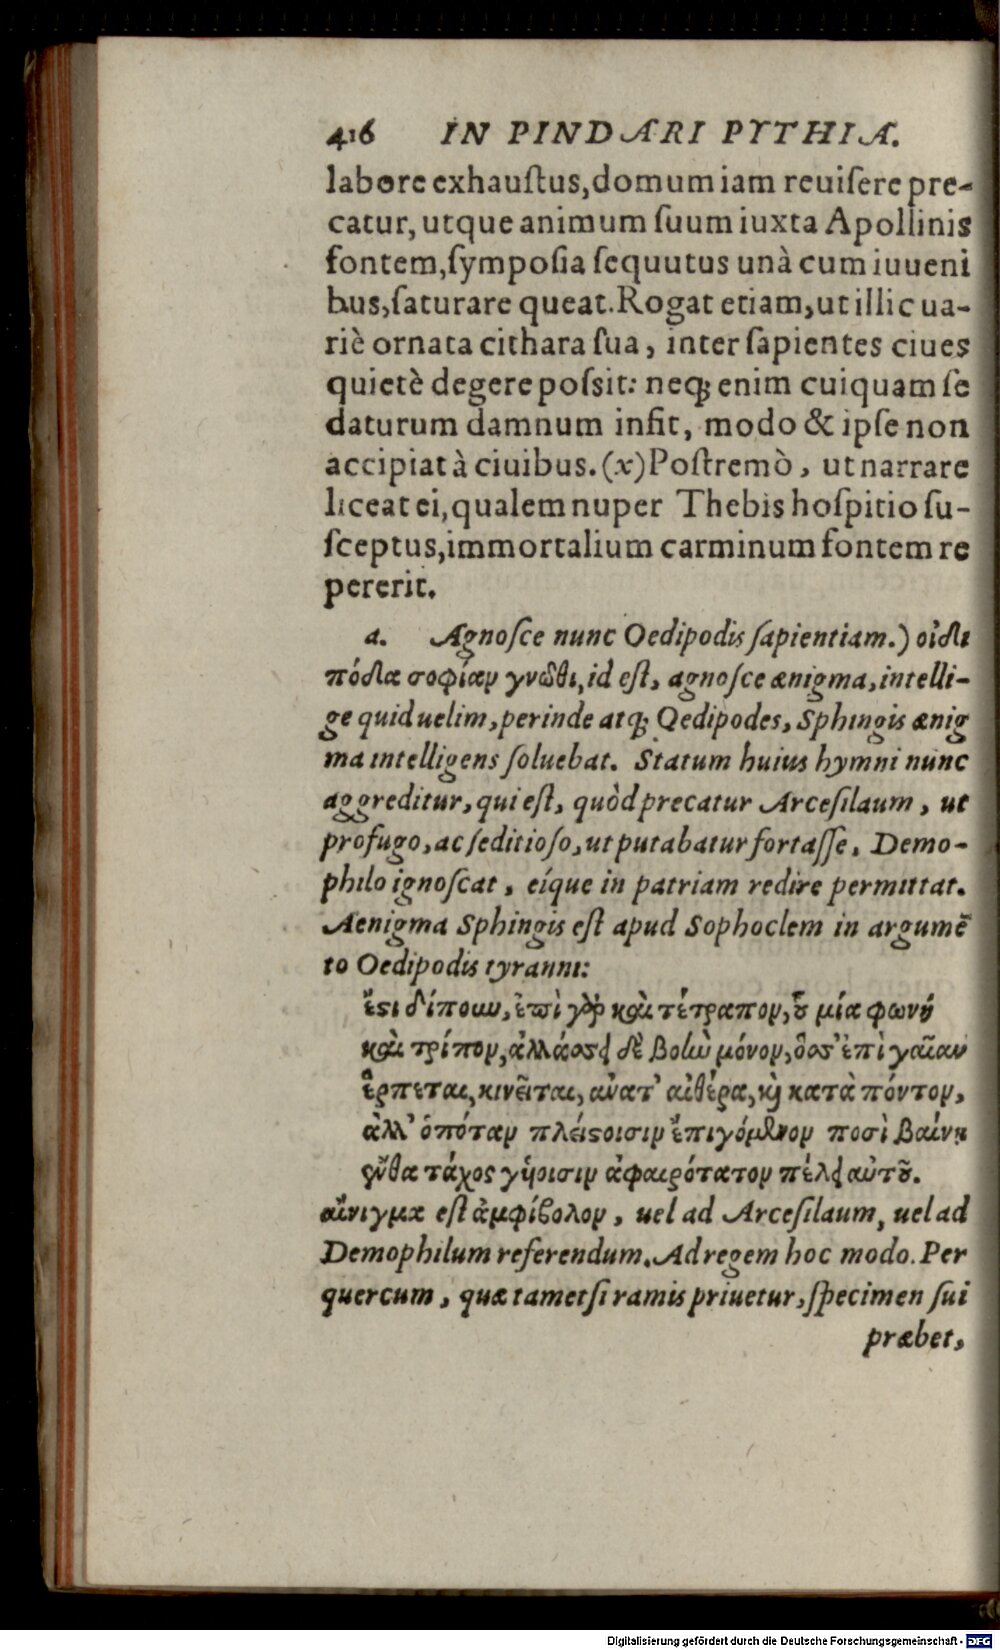 416 IN PINDARI PYTHIA.
labore exhaustus, domum iam reuisere pre-
catur, utque animum suum iuxta Apollinis
fontem, symposia sequutus unà cum iuueni
bus, saturare queat. Rogat etiam, ut illic ua-
riè ornata cithara sua, inter sapientes ciues
quietè degere possit: neq; enim cuiquam se
daturum damnum infit, modo & ipse non
accipiat à ciuibus. (x) Postremò, ut narrare
liceat ei, qualem nuper Thebis hospitio su-
sceptus, immortalium carminum fontem re
pererit.
a. Agnosce nunc Oedipodis sapientiam.) οἰδι
πόδα σοφίαν γνῶθι, id est, agnosce ænigma, intelli-
ge quid uelim, perinde atq; Oedipodes, Sphingis ænig
ma intelligens soluebat. Statum huius hymni nunc
aggreditur, qui est, quòd precatur Arcesilaum, ut
profugo, ac seditioso, ut putabatur fortasse, Demo-
philo ignoscat, eíque in patriam redire permittat.
Aenigma Sphingis est apud Sophoclem in argumē
to Oedipodis tyranni:
ἔστι δίπουν, ἐπὶ γῆς καὶ τέτραπον, οὗ μία φωνή
καὶ τρίπον, ἀλλάσσει δὲ βοὴν μόνον, ὅσσ' ἐπὶ γαῖαν
ἕρπεται, κινεῖται, ἀνατ' αἰθέρα, καὶ κατὰ πόντον,
ἀλλ' ὁπόταν πλείστοισιν ἐπιγόμενον ποσὶ βαίνῃ
ἔνθα τάχος γήοισιν ἀφαιρότατον πέλει αὐτοῦ.
αἴνιγμα est ἀμφίβολον, uel ad Arcesilaum, uel ad
Demophilum referendum. Ad regem hoc modo. Per
quercum, quæ tametsi ramis priuetur, specimen sui
præbet,
Digitalisierung gefördert durch die Deutsche Forschungsgemeinschaft - DFG